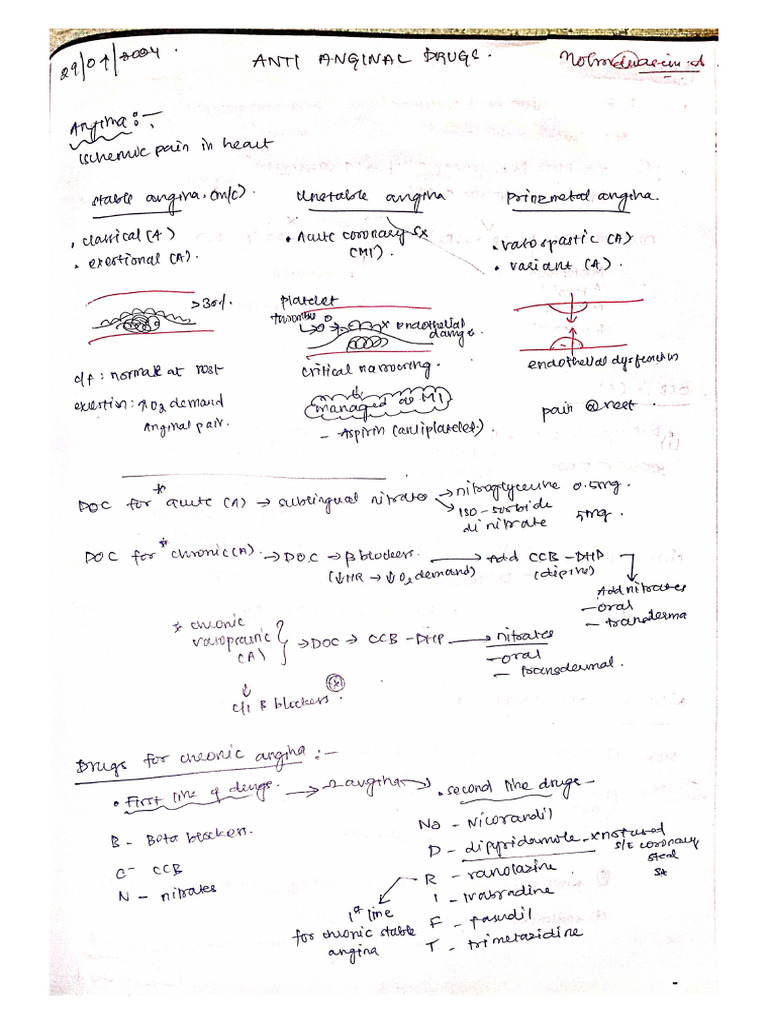 29/01/2024.
ANTI ANGINAL DRUGS.
Angina:-
Ischemic pain in heart
stable angina. (m/c).
unstable angina
prinzmetal angina.
. classical (A)
. exertional (A).
. Acute coronary Sx
(MI).
. vasospastic (A)
. variant (A).
>30%.
platelet
thrombus
x endothelial
damage.
critical narrowing.
managed as MI
- Aspirin (antiplatelet).
endothelial dysfunction
c/f: normal at rest
exertion: ↑O2 demand
Anginal pain.
pain @ rest.
DOC for * acute (A) → sublingual nitrates → nitroglycerine 0.5mg.
→ ISO-sorbide
di nitrate 5mg.
DOC for * chronic (A). → DOC → β blockers. → Add CCB - DHP
(↓HR → ↓O2 demand) (dipine)
Add nitrates
- oral
- transderma
* chronic
vasospastic
(A) } → DOC → CCB - DHP → nitrates
- oral
- transdermal.
↓
c/I B blockers.
Drugs for chronic angina:-
. First line of drugs. → angina → . second line drugs -
B - Beta blockers.
C - CCB
N - nitrates
Na - Nicorandil
D - dipyridamole - x not used
S/E coronary
steal
R - ranolazine
1st line
for chronic stable
angina
I - Ivabradine
F - fasudil
T - trimetazidine